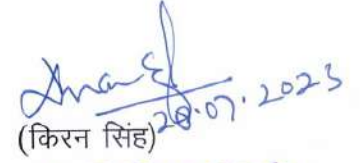 28.07.2023
(किरन सिंह)